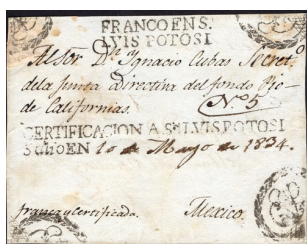 FRANCO EN S.
LVIS POTOSI
Al Sor. Dn. Ignacio Cubas Secreto.
de la junta directiva del fondo Pio-
de Californias.
No. 5
CERTIFICACION A SN LVIS POTOSI
EN 10 de Mayo de 1834.
franca y Certificada.
Mexico.